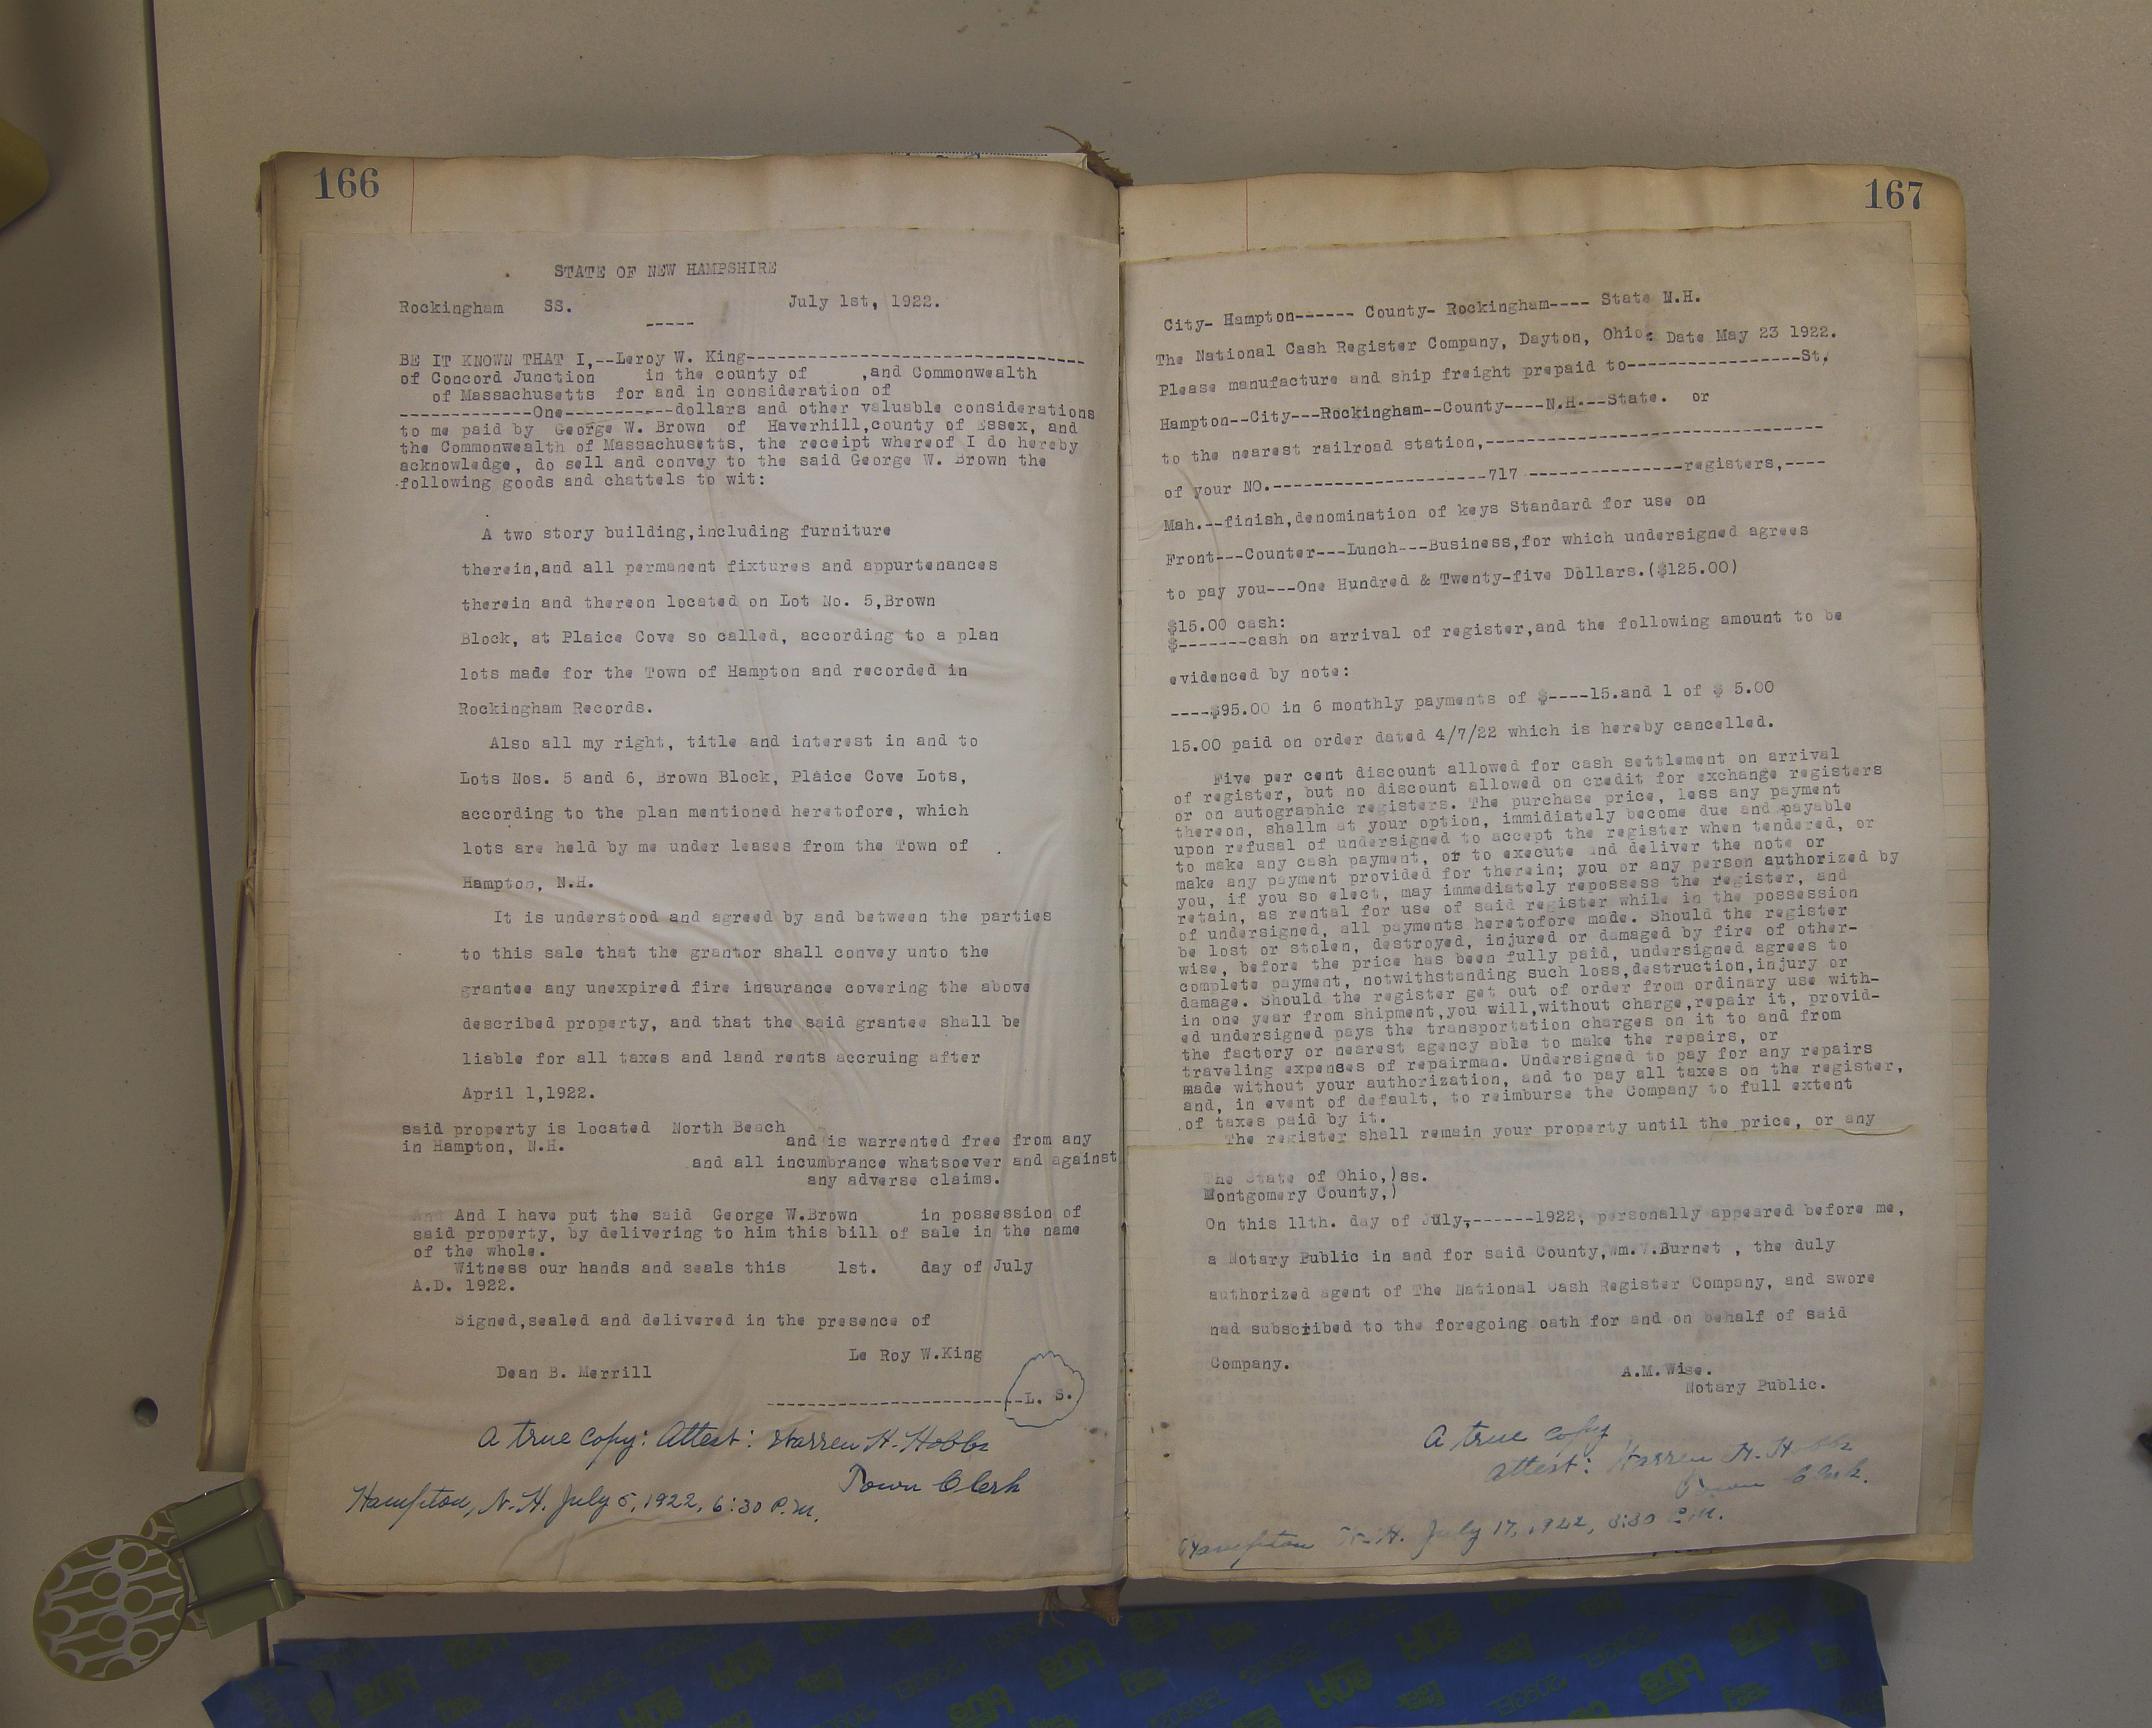 166
STATE OF NEW HAMPSHIRE
Rockingham SS. July 1st, 1922.
-----
BE IT KNOWN THAT I,--Leroy W. King---------------------------------
of Concord Junction in the county of ,and Commonwealth
of Massachusetts for and in consideration of
-------------One-----------dollars and other valuable considerations
to me paid by George W. Brown of Haverhill,county of Essex, and
the Commonwealth of Massachusetts, the receipt whereof I do hereby
acknowledge, do sell and convey to the said George W. Brown the
following goods and chattels to wit:
A two story building,including furniture
therein,and all permanent fixtures and appurtenances
therein and thereon located on Lot No. 5,Brown
Block, at Plaice Cove so called, according to a plan
lots made for the Town of Hampton and recorded in
Rockingham Records.
Also all my right, title and interest in and to
Lots Nos. 5 and 6, Brown Block, Plaice Cove Lots,
according to the plan mentioned heretofore, which
lots are held by me under leases from the Town of
Hampton, N.H.
It is understood and agreed by and between the parties
to this sale that the grantor shall convey unto the
grantee any unexpired fire insurance covering the above
described property, and that the said grantee shall be
liable for all taxes and land rents accruing after
April 1,1922.
said property is located North Beach
in Hampton, N.H. and is warrented free from any
and all incumbrance whatsoever and against
any adverse claims.
And And I have put the said George W.Brown in possession of
said property, by delivering to him this bill of sale in the name
of the whole.
Witness our hands and seals this 1st. day of July
A.D. 1922.
Signed,sealed and delivered in the presence of
Le Roy W.King
Dean B. Merrill
-------------------------L. S.
A true copy: Attest: Warren H. Hobbs
Town Clerk
Hampton, N.H. July 5, 1922, 6:30 P.M.
167
City- Hampton------ County- Rockingham---- State N.H.
The National Cash Register Company, Dayton, Ohio: Date May 23 1922.
Please manufacture and ship freight prepaid to-----------------St.
Hampton--City---Rockingham--County----N.H---State. or
to the nearest railroad station,---------------------------------
of your NO.---------------------717 ---------------registers,----
Mah.--finish,denomination of keys Standard for use on
Front---Counter---Lunch---Business,for which undersigned agrees
to pay you---One Hundred & Twenty-five Dollars.($125.00)
$15.00 cash:
$-------cash on arrival of register,and the following amount to be
evidenced by note:
----$95.00 in 6 monthly payments of $----15.and 1 of $ 5.00
15.00 paid on order dated 4/7/22 which is hereby cancelled.
Five per cent discount allowed for cash settlement on arrival
of register, but no discount allowed on credit for exchange registers
or on autographic registers. The purchase price, less any payment
thereon, shallm at your option, immidiately become due and payable
upon refusal of undersigned to accept the register when tendered, or
to make any cash payment, or to execute and deliver the note or
make any payment provided for therein; you or any person authorized by
you, if you so elect, may immediately repossess the register, and
retain, as rental for use of said register while in the possession
of undersigned, all payments heretofore made. Should the register
be lost or stolen, destroyed, injured or damaged by fire of other-
wise, before the price has been fully paid, undersigned agrees to
complete payment, notwithstanding such loss,destruction,injury or
damage. Should the register get out of order from ordinary use with-
in one year from shipment,you will,without charge,repair it, provid-
ed undersigned pays the transportation charges on it to and from
the factory or nearest agency able to make the repairs, or
traveling expenses of repairman. Undersigned to pay for any repairs
made without your authorization, and to pay all taxes on the register,
and, in event of default, to reimburse the Company to full extent
of taxes paid by it.
The register shall remain your property until the price, or any
The State of Ohio,)ss.
Montgomery County,)
On this 11th. day of July,------1922, personally appeared before me,
a Notary Public in and for said County,Wm.V.Burnet , the duly
authorized agent of The National Cash Register Company, and swore
nad subscribed to the foregoing oath for and on behalf of said
Company.
A.M.Wise.
Notary Public.
A true copy
attest: Warren H. Hobbs
Town Clerk.
Hampton N.H. July 17, 1922, 8:30 P.M.